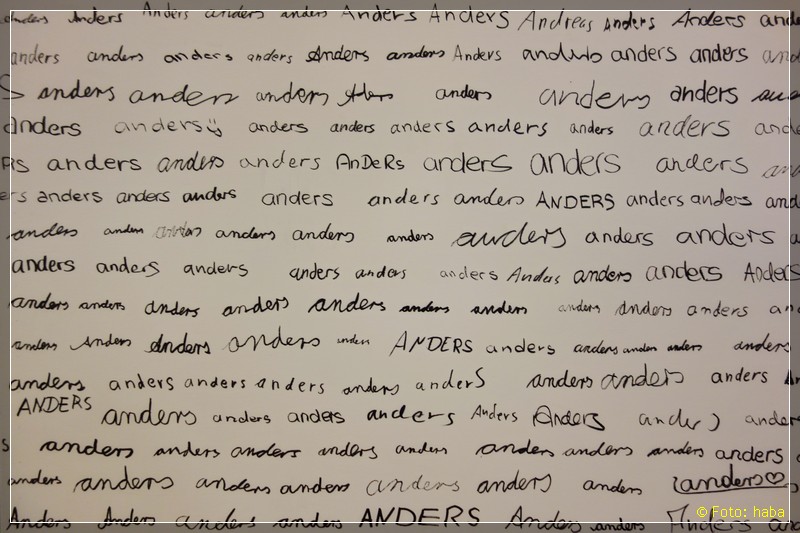 Anders Anders anders anders Anders Anders Andreas Anders Anders and
anders anders anders anders Anders anders Anders anders anders
anders anders anders anders anders anders
anders anders anders anders anders anders anders anders and
anders anders anders AnDeRs anders anders anders
ers anders anders anders anders anders anders ANDERS anders anders and
anders anders anders anders anders anders anders anders
anders anders anders anders anders anders Anders anders anders Anders
anders anders anders anders anders anders anders anders anders anders an
anders Anders Anders anders anders ANDERS anders anders anders anders anders
anders anders anders anders anders anders anders anders anders
ANDERS anders anders anders anders Anders Anders ander
s anders anders anders anders anders anders anders anders anders
anders anders anders anders anders anders anders anders♡
Anders Anders anders anders ANDERS Anders anders Anders an
© Foto: haba